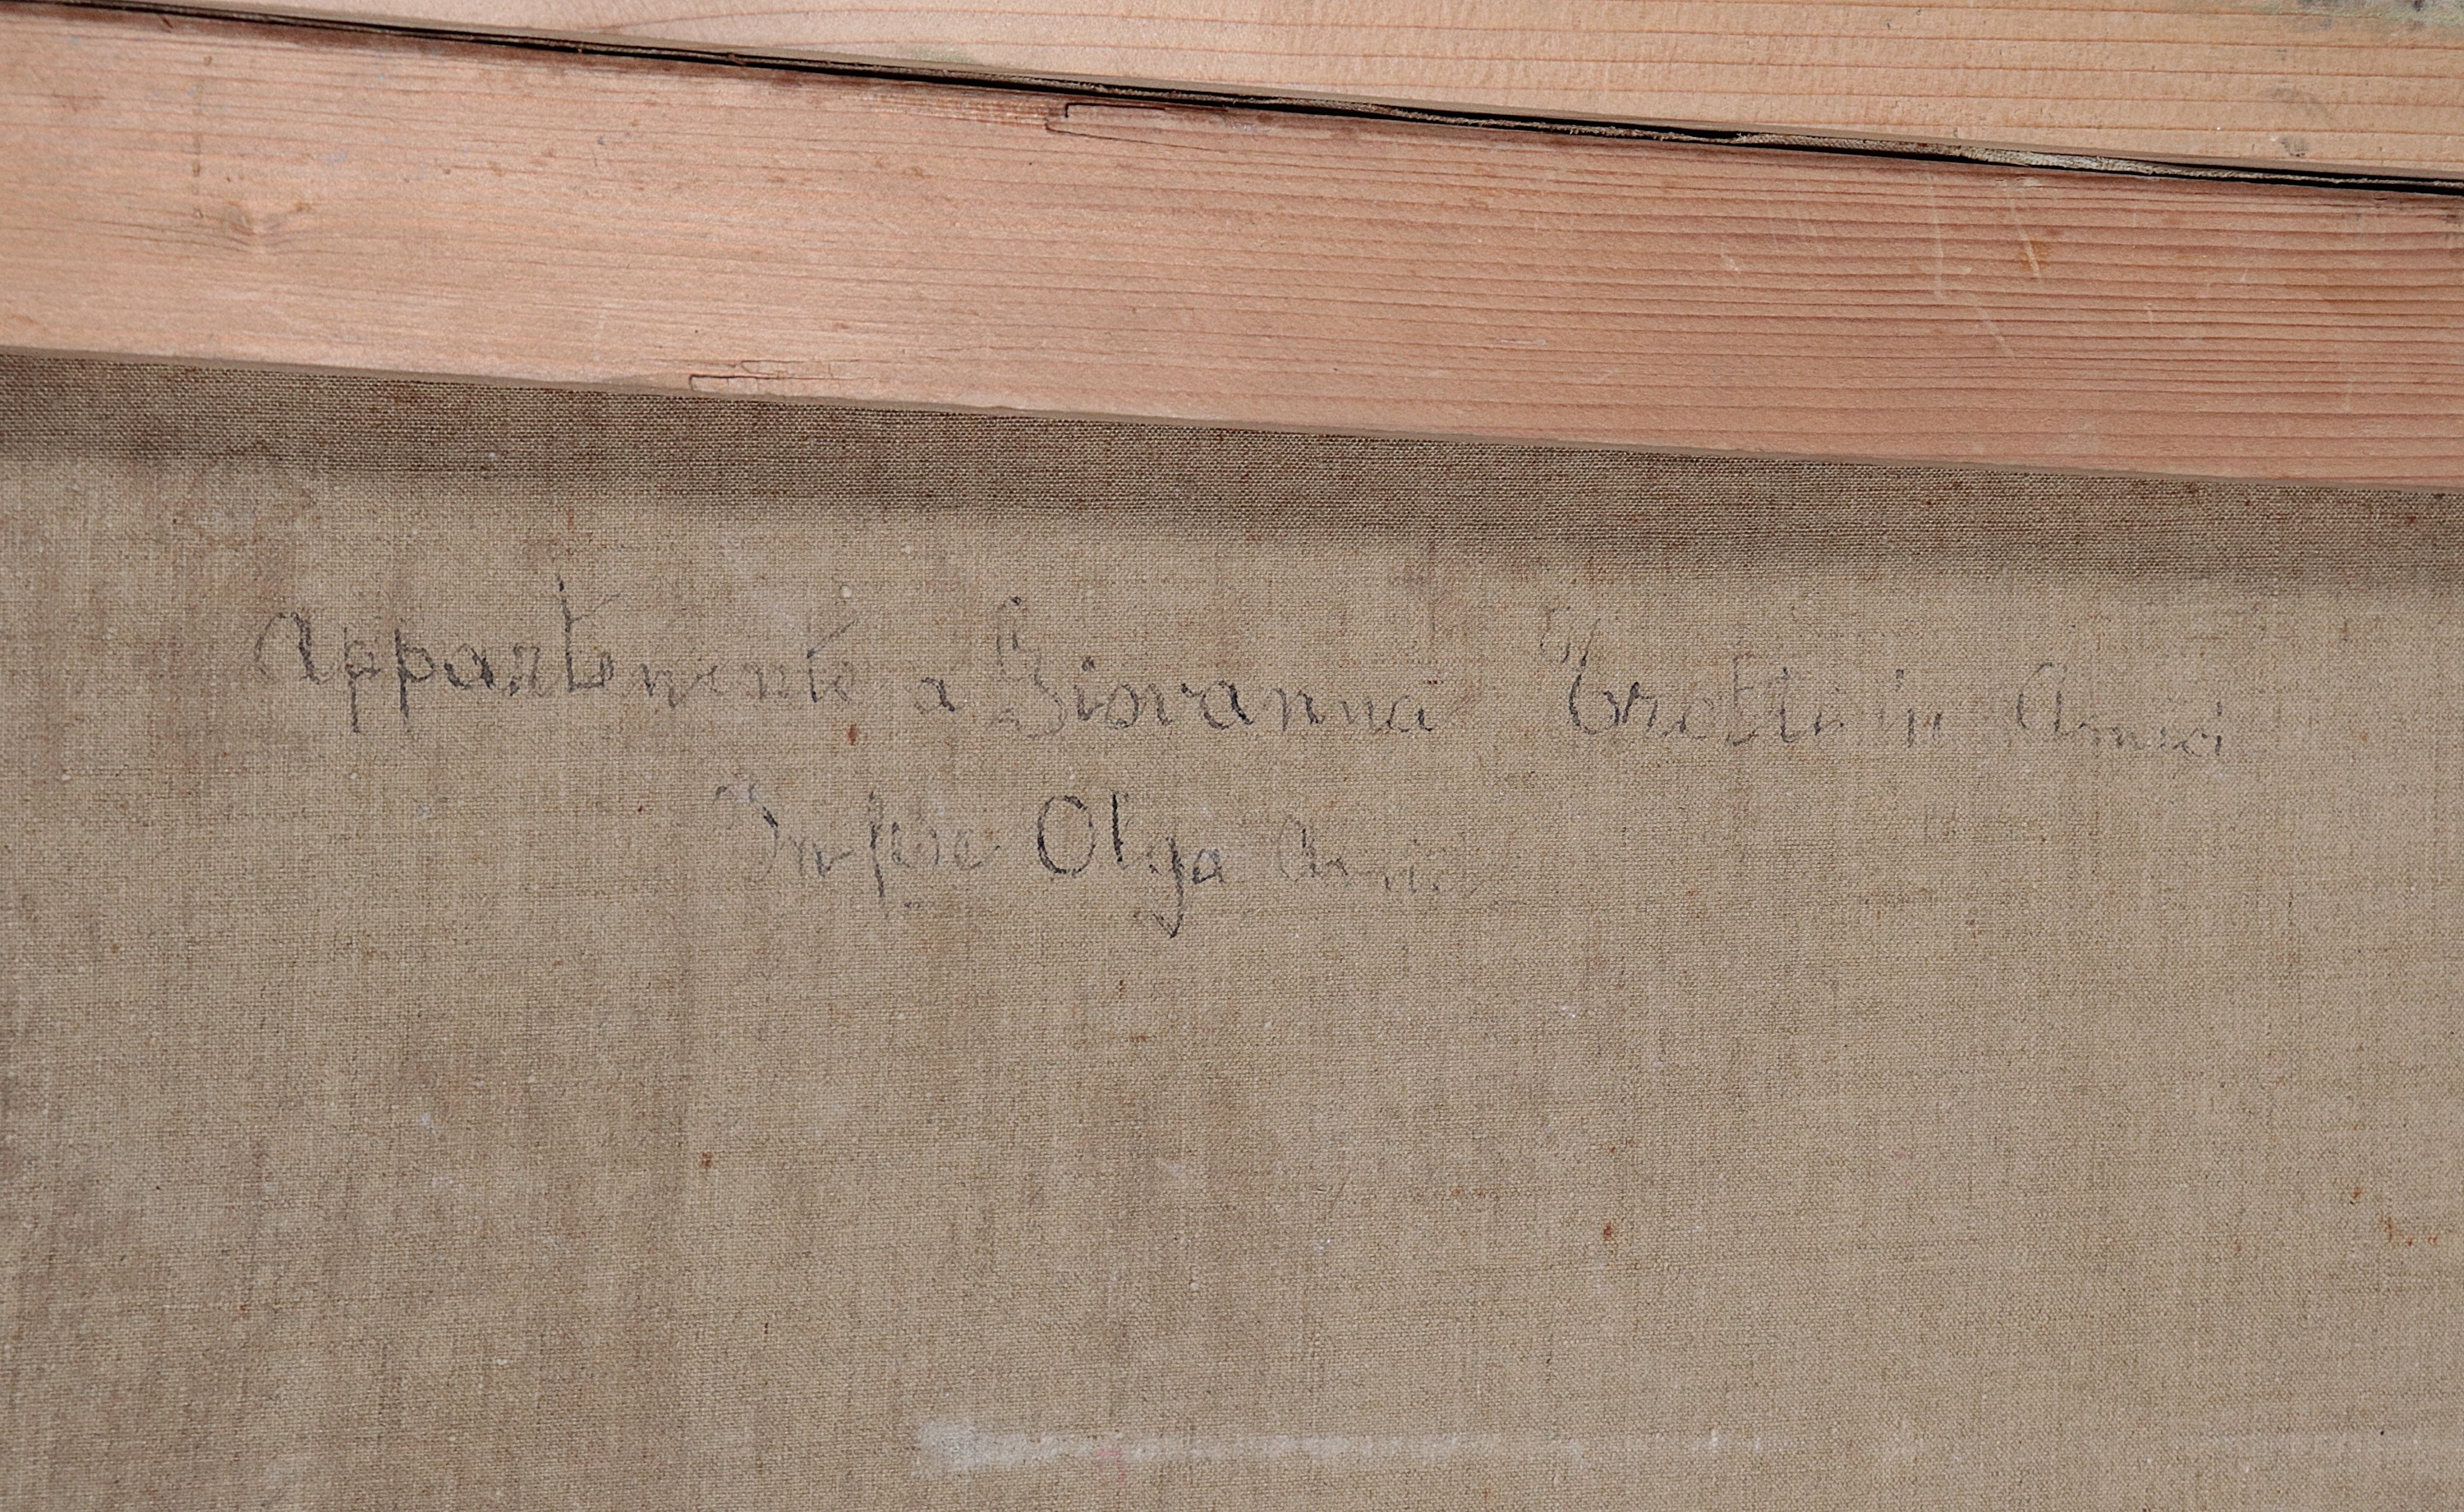 Appartenente a Giovanna Trotti in Amici
Infine Olga Amici